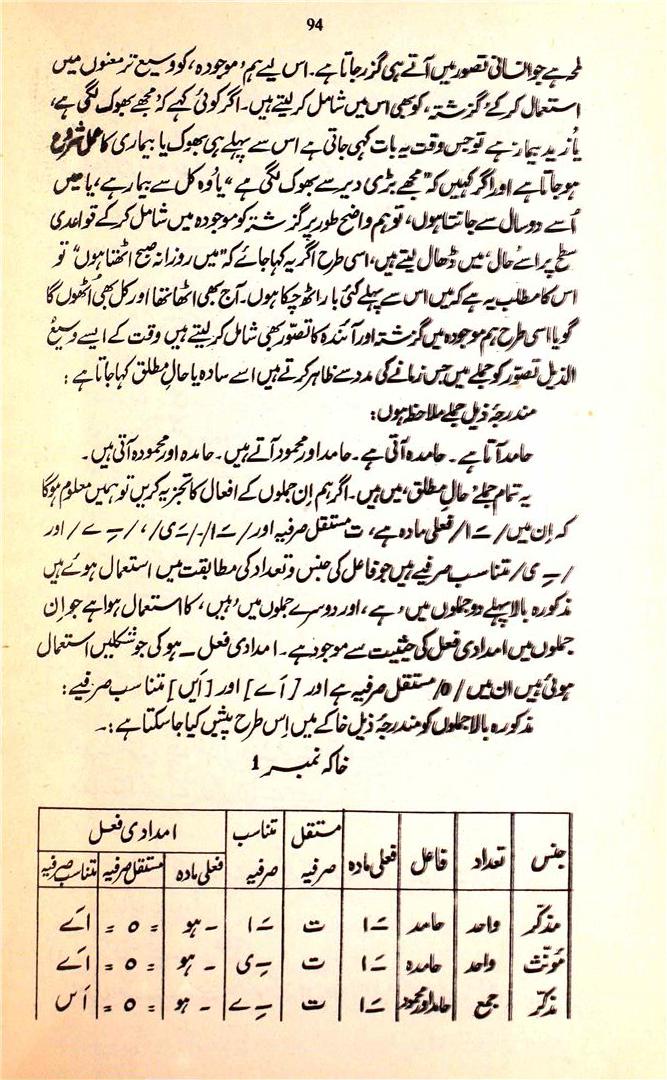 94
لمحہ ہے جو انسانی تصور میں آتے ہی گزر جاتا ہے۔ اس لیے ہم ’موجودہ‘ کو وسیع تر معنوں میں
استعمال کر کے ’گزشتہ‘ کو بھی اس میں شامل کر لیتے ہیں۔ اگر کوئی کہے کہ ’مجھے بھوک لگی ہے،
یا زید بیمار ہے تو جس وقت یہ بات کہی جاتی ہے اس سے پہلے ہی بھوک یا بیماری کا عمل شروع
ہو جاتا ہے اور اگر کہیں کہ "مجھے بڑی دیر سے بھوک لگی ہے، یا وُہ کل سے بیمار ہے، یا میں
اُسے دو سال سے جانتا ہوں، تو ہم واضح طور پر گزشتہ کو موجودہ میں شامل کر کے قواعدی
سطح پر اسے ’حال‘ میں ڈھال لیتے ہیں، اسی طرح اگر یہ کہا جائے کہ "میں روزانہ صبح اٹھتا ہوں" تو
اس کا مطلب یہ ہے کہ میں اس سے پہلے کئی بار اٹھ چکا ہوں۔ آج بھی اٹھا تھا اور کل بھی اُٹھوں گا
گویا اسی طرح ہم موجودہ میں گزشتہ اور آئندہ کا تصوّر بھی شامل کر لیتے ہیں وقت کے ایسے وسیع
الذیل تصوّر کو جملے میں جس زمانے کی مدد سے ظاہر کرتے ہیں اسے سادہ یا حالِ مطلق کہا جاتا ہے:
مندرجۂ ذیل جملے ملاحظہ ہوں:
حامد آتا ہے۔ حامدہ آتی ہے۔ حامد اور محمود آتے ہیں۔ حامدہ اور محمودہ آتی ہیں۔
یہ تمام جملے ’حالِ مطلق‘ میں ہیں۔ اگر ہم اِن جملوں کے افعال کا تجزیہ کریں تو ہمیں معلوم ہوگا
کہ اِن میں /ـَا/ فعلی مادہ ہے، ت مستقل صرفیہ اور /ـَا/-/ـِی/، /ـِے/ اور
/ـِی/ متناسب صرفیے ہیں جو فاعل کی جنس و تعداد کی مطابقت میں استعمال ہوئے ہیں
مذکورہ بالا پہلے دو جملوں میں ’ہے‘ اور دوسرے جملوں میں ’ہیں‘ کا استعمال ہوا ہے جو اِن
جملوں میں امدادی فعل کی حیثیت سے موجود ہے۔ امدادی فعل ـ ہو کی جو شکلیں استعمال
ہوئی ہیں ان میں /0/ مستقل صرفیہ ہے اور [اَے] اور [اَیں] متناسب صرفیے:
مذکورہ بالا جملوں کو مندرجۂ ذیل خاکے میں اِس طرح پیش کیا جا سکتا ہے:۔
خاکہ نمبر 1
جنس تعداد فاعل فعلی مادہ مستقل صرفیہ تناسب صرفیہ امدادی فعل
فعلی مادہ مستقل صرفیہ تناسب صرفیہ
مذکّر واحد حامد ـَا ت ـَا ـ ہو = 0 = اَے
مؤنّث واحد حامدہ ـَا ت ـِی ـ ہو = 0 = اَے
مذکّر جمع حامد اور محمود ـَا ت ـِے ـ ہو = 0 =